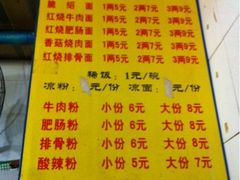 脆绍面 1两5元 2两7元 3两9元
红烧牛肉面 1两5元 2两7元 3两9元
红烧肥肠面 1两5元 2两7元 3两9元
香菇烧肉面 1两5元 2两7元 3两9元
红烧排骨面 1两5元 2两7元 3两9元
稀饭：1元/碗
凉粉： 元/份 凉面： 元/份
牛肉粉 小份 6元 大份 8元
肥肠粉 小份 6元 大份 8元
排骨粉 小份 6元 大份 8元
酸辣粉 小份 5元 大份 7元